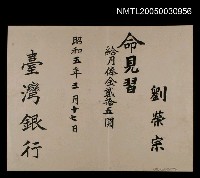 NMTL20050030956
劉榮宗
命見習
給月俸金貳拾五圓
昭和五年三月十七日
臺灣銀行